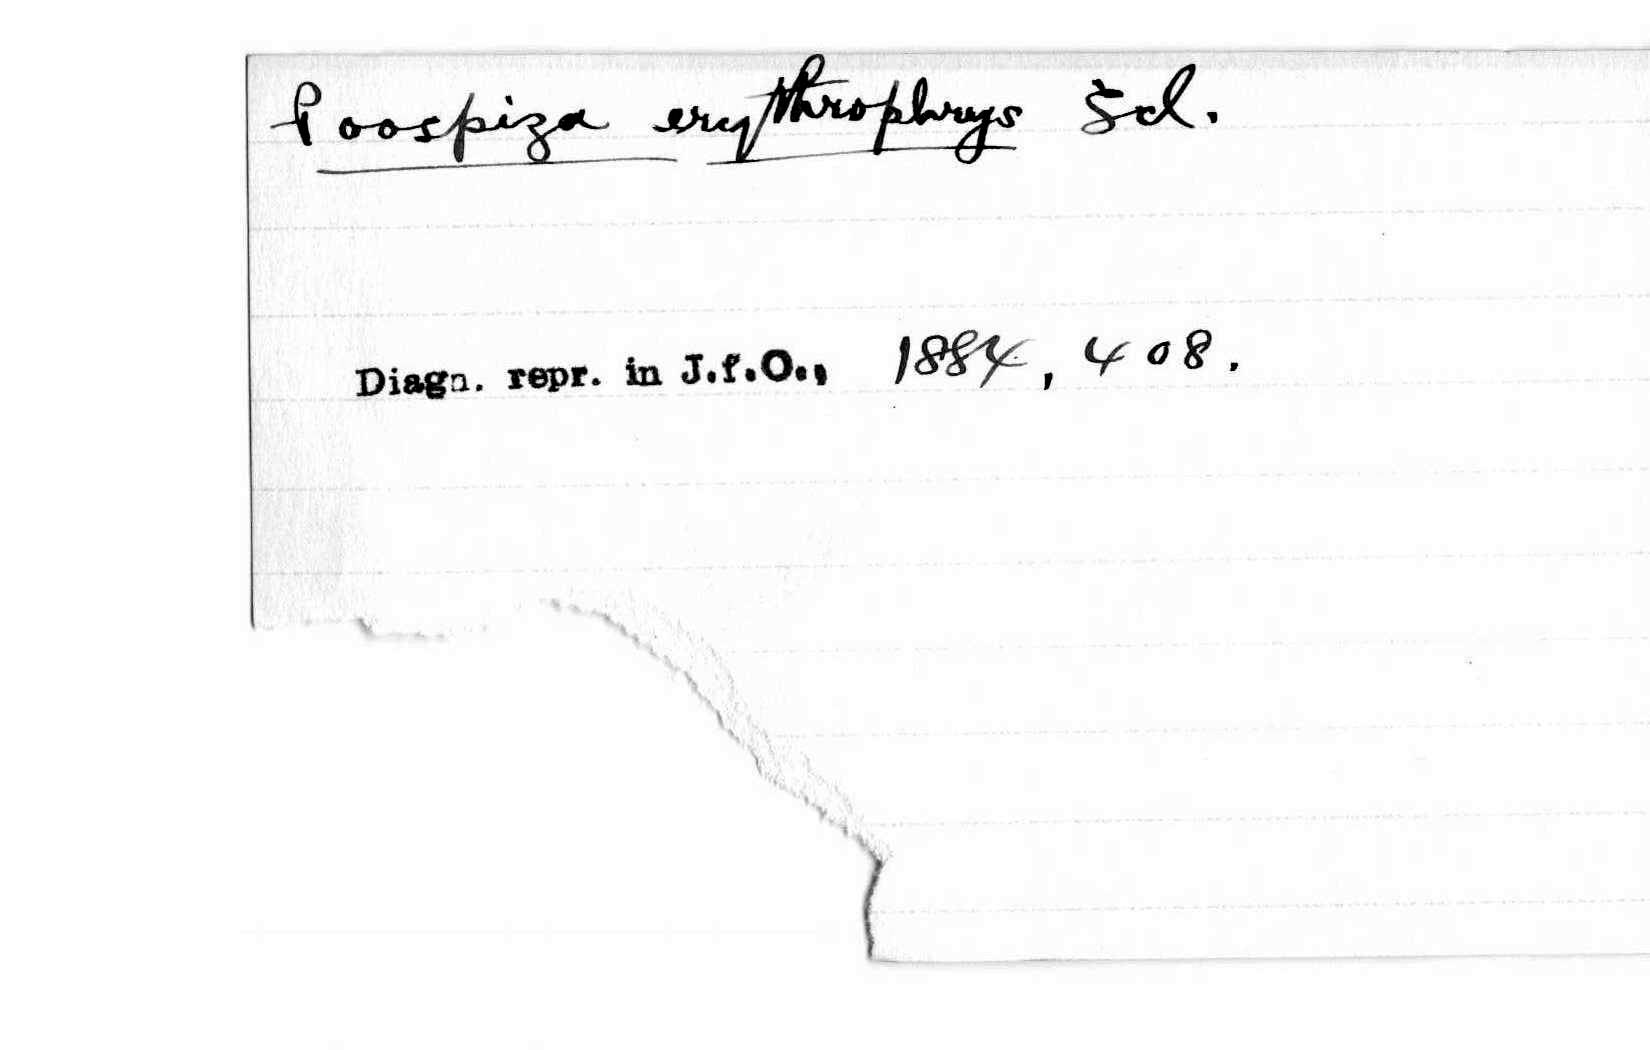 Poospiza erythrophrys Scl.
Diagn. repr. in J.f.O., 1884, 408.